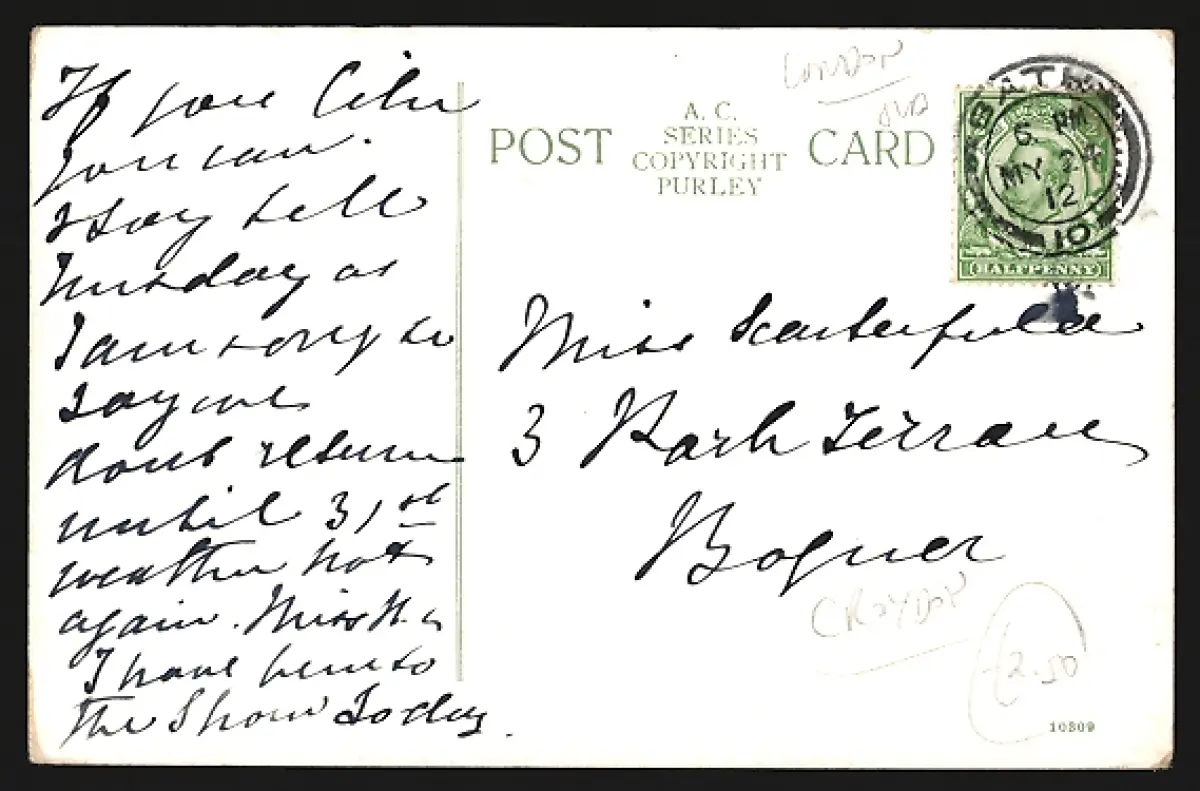 If you
you can.
I say tell
Thursday as
I am sorry to
say we
dont return
until 31st
weather hot
again. Miss H. &
I have been to
the Show Today.
POST CARD
A. C.
SERIES
COPYRIGHT
PURLEY
LONDON
OLD
BATH
6 PM
MY 24
12
10
HALFPENNY
Miss Scarterfield
3 Park Terrace
Bognor
CROYDON
2.50
10309